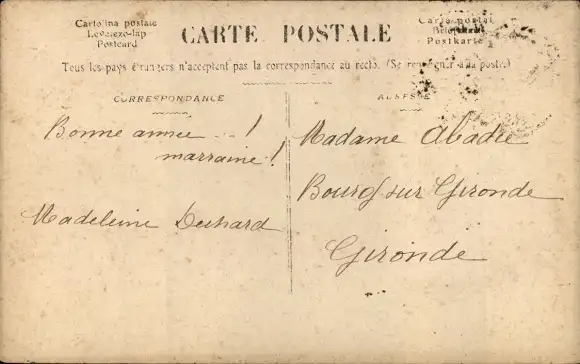 Cartolina postale
Levelezo-lap
Postcard
CARTE POSTALE
Carta postal
Postkarte
Tous les pays étrangers n'acceptent pas la correspondance au recto. (Se renseigner à la poste)
CORRESPONDANCE
ADRESSE
Bonne année ... !
marraine !
Madeleine
Madame Abadie
Bourg sur Gironde
Gironde